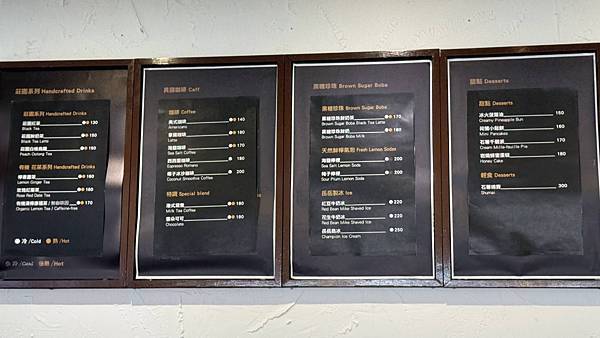 莊園系列 Handcrafted Drinks
莊園系列 Handcrafted Drinks
莊園紅茶 130
Black Tea
莊園鮮奶茶 150
Black Tea Latte
莊園白桃烏龍 160
Peach Oolong Tea
有機 花草系列 Handcrafted Drinks
檸檬薑茶 160
Lemon Ginger Tea
玫瑰紅棗茶 160
Rose Red Date Tea
170
Organic Lemon Tea / Caffeine-free
冷/Cold 熱/Hot
冷/Cold 熱/Hot
咖啡 Coffee
美式咖啡 140
Americano
拿鐵咖啡 160
Latte
海鹽咖啡 170
Sea Salt Coffee
西西里咖啡 160
Espresso Romano
椰子冰沙咖啡 200
Coconut Smoothie Coffee
特調 Special blend
港式鴛鴦 180
Milk Tea Coffee
180
Chocolate
黑糖珍珠 Brown Sugar Boba
黑糖珍珠 Brown Sugar Boba
黑糖珍珠鮮奶茶 170
Brown Sugar Boba Black Tea Latte
黑糖珍珠鮮奶 160
Brown Sugar Boba Milk
天然鮮檸氣泡 Fresh Lemon Sodas
海鹽檸檬 200
Sea Salt Lemon Soda
梅子檸檬 200
Sour Plum Lemon Soda
岳岳製冰 Ice
紅豆牛奶冰 220
Red Bean Milk Shaved Ice
花生牛奶冰 220
Red Bean Milk Shaved Ice
岳岳島冰 250
Ice Cream
甜點 Desserts
甜點 Desserts
冰火菠蘿油 150
Creamy Pineapple Bun
荷蘭小鬆餅 160
Mini Pancakes
石薯千層派 170
Cream Mille-feuille Pie
岩燒蜂蜜蛋糕 180
Honey Cake
輕食 Desserts
石薯燒賣 300
Shumai